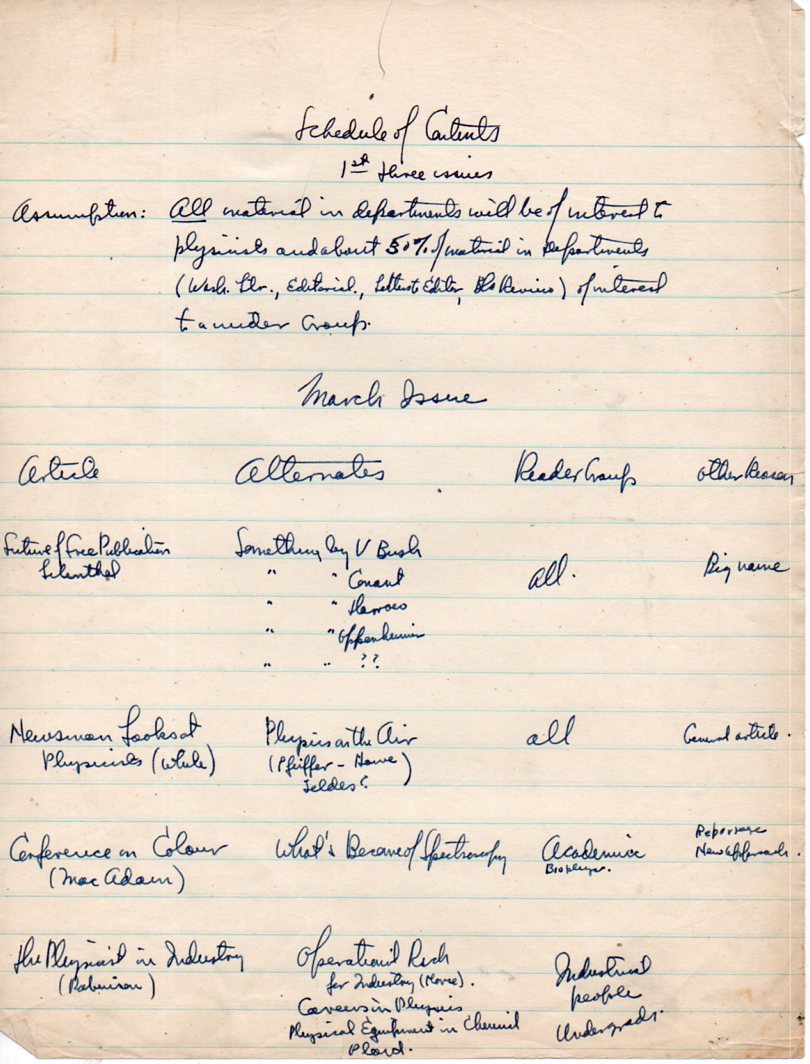 Schedule of Contents
1st three issues
Assumption: All material in departments will be of interest to
physicists and about 50% of material in departments
(Wash. Ltr., Editorial, Letters to Editor, Bk Reviews) of interest
to a wider Group.
March Issue
Article Alternates Reader Groups other Reason
Future of Free Publication Something by V Bush
Lilienthal " " Conant All. Big name
" "
" " Oppenheimer
" " ??
Newsman Looks at Physics on the Air all General article.
Physicists (White) (Pfeiffer - Howe)
Seldes?
Conference on Colour What's Become of Spectroscopy Academic New approach.
(Mac Adam)
The Physicist in Industry Operational Rsch Industrial
(Robinson) for Industry (Morse). people
Careers in Physics Undergrads.
Physical Equipment in Chemical
Plant.